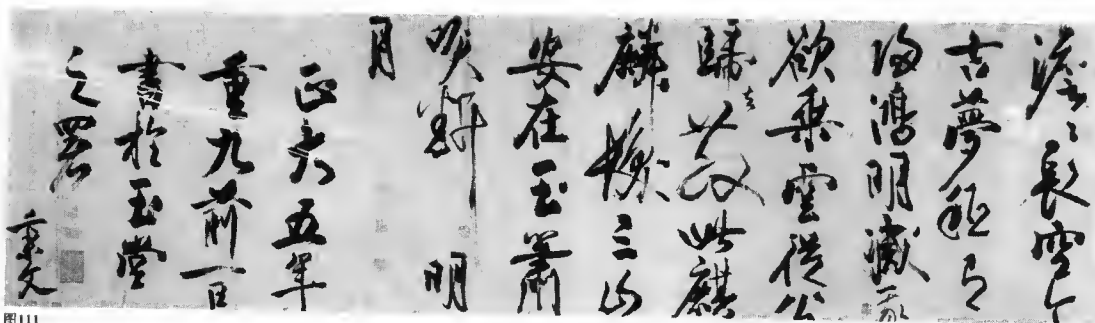 澹々長空今
古夢秖有
歸鴻明滅我
欲乘雲從公
歸去散此麒
麟髮三山
安在玉簫
吹斷明
月
正大五年
重九前一日
書於玉堂
之署
秉文
图111